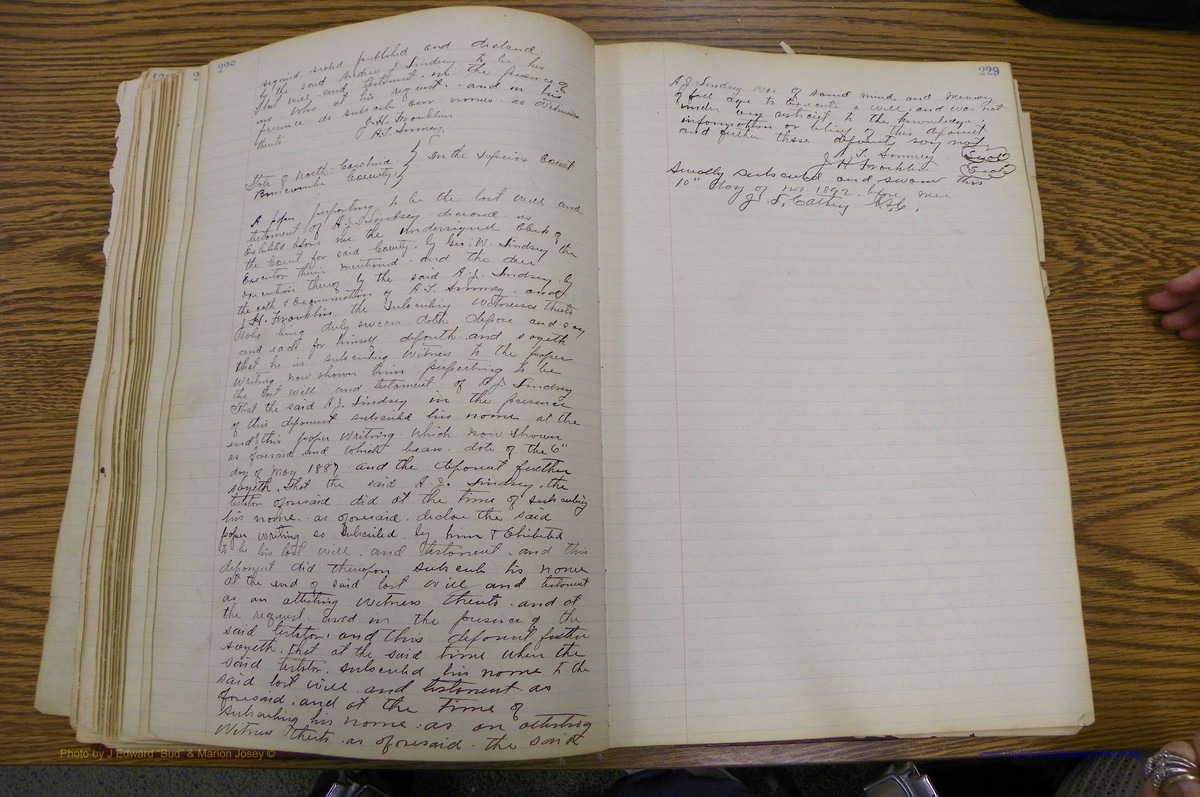 228
signed sealed published and declared
by the said Andrew J. Lindsey to be his
last will and testament in the presence of
us who at his request and in his
presence do subscribe our names as witnesses
thereto
J. H. Franklin
A. T. Summey
State of North-Carolina } In the Superior Court
Buncombe County }
A paper purporting to be the last will and
testament of A. J. Lindsey deceased is
Exhibited before me the undersigned Clerk of
the Court for said County by Geo. W. Lindsey the
Executor therein mentioned and the due
execution thereof by the said A. J. Lindsey by
the oath & Examination of A. T. Summey and
J H. Franklin the subscribing witnesses thereto
Who being duly sworn doth depose and say
and each for himself deposeth and sayeth
that he is subscribing witness to the paper
writing now shown him purporting to be
the last will and testament of A J. Lindsey
That the said A J. Lindsey in the presence
of this deponent subscribed his name at the
end this paper writing which now shown
as aforesaid and which bears date of the 6"
day of May 1887 and the deponent further
sayeth, that the said A J. Lindsey, the
testator aforesaid did at the time of subscribing
his name as aforesaid declare the said
paper writing so subscribed by him & Exhibited
to be his last will and testament and this
deponent did thereupon subscribe his name
at the end of said last will and testament
as an attesting witness thereto and at
the request and in the presence of the
said testator, and this deponent further
sayeth, that at the said time when the
said testator subscribed his name to the
said last will and testament as
aforesaid, and at the time of
subscribing his name as an attesting
witness thereto as aforesaid the said
229
A J. Lindsey was of sound mind and memory
of full age to execute a will and was not
under any restraint to the knowledge,
information or belief of this deponent
and further these deponents say not,
A. T. Summey (Seal)
J H Franklin (Seal)
Severally subscribed and sworn this
10" day of Nov. 1892 before me
J. L. Cathey CSC.
Photo by J Edward "Bud" & Marion Josey ©